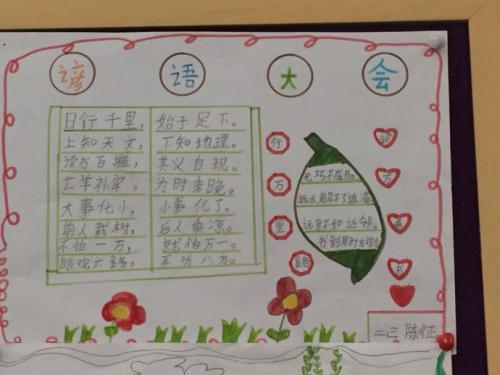 谚语大会
日行千里，始于足下。
上知天文，下知地理。
读书百遍，其义自现。
亡羊补牢，为时未晚。
大事化小，小事化了。
前人栽树，后人乘凉。
不怕一万，就怕万一。
眼观六路，耳听八方。
行
万
里
路
无巧不成书。
远水解不了近渴。
远亲不如近邻。
书到用时方恨少
读
万
卷
二三 陈